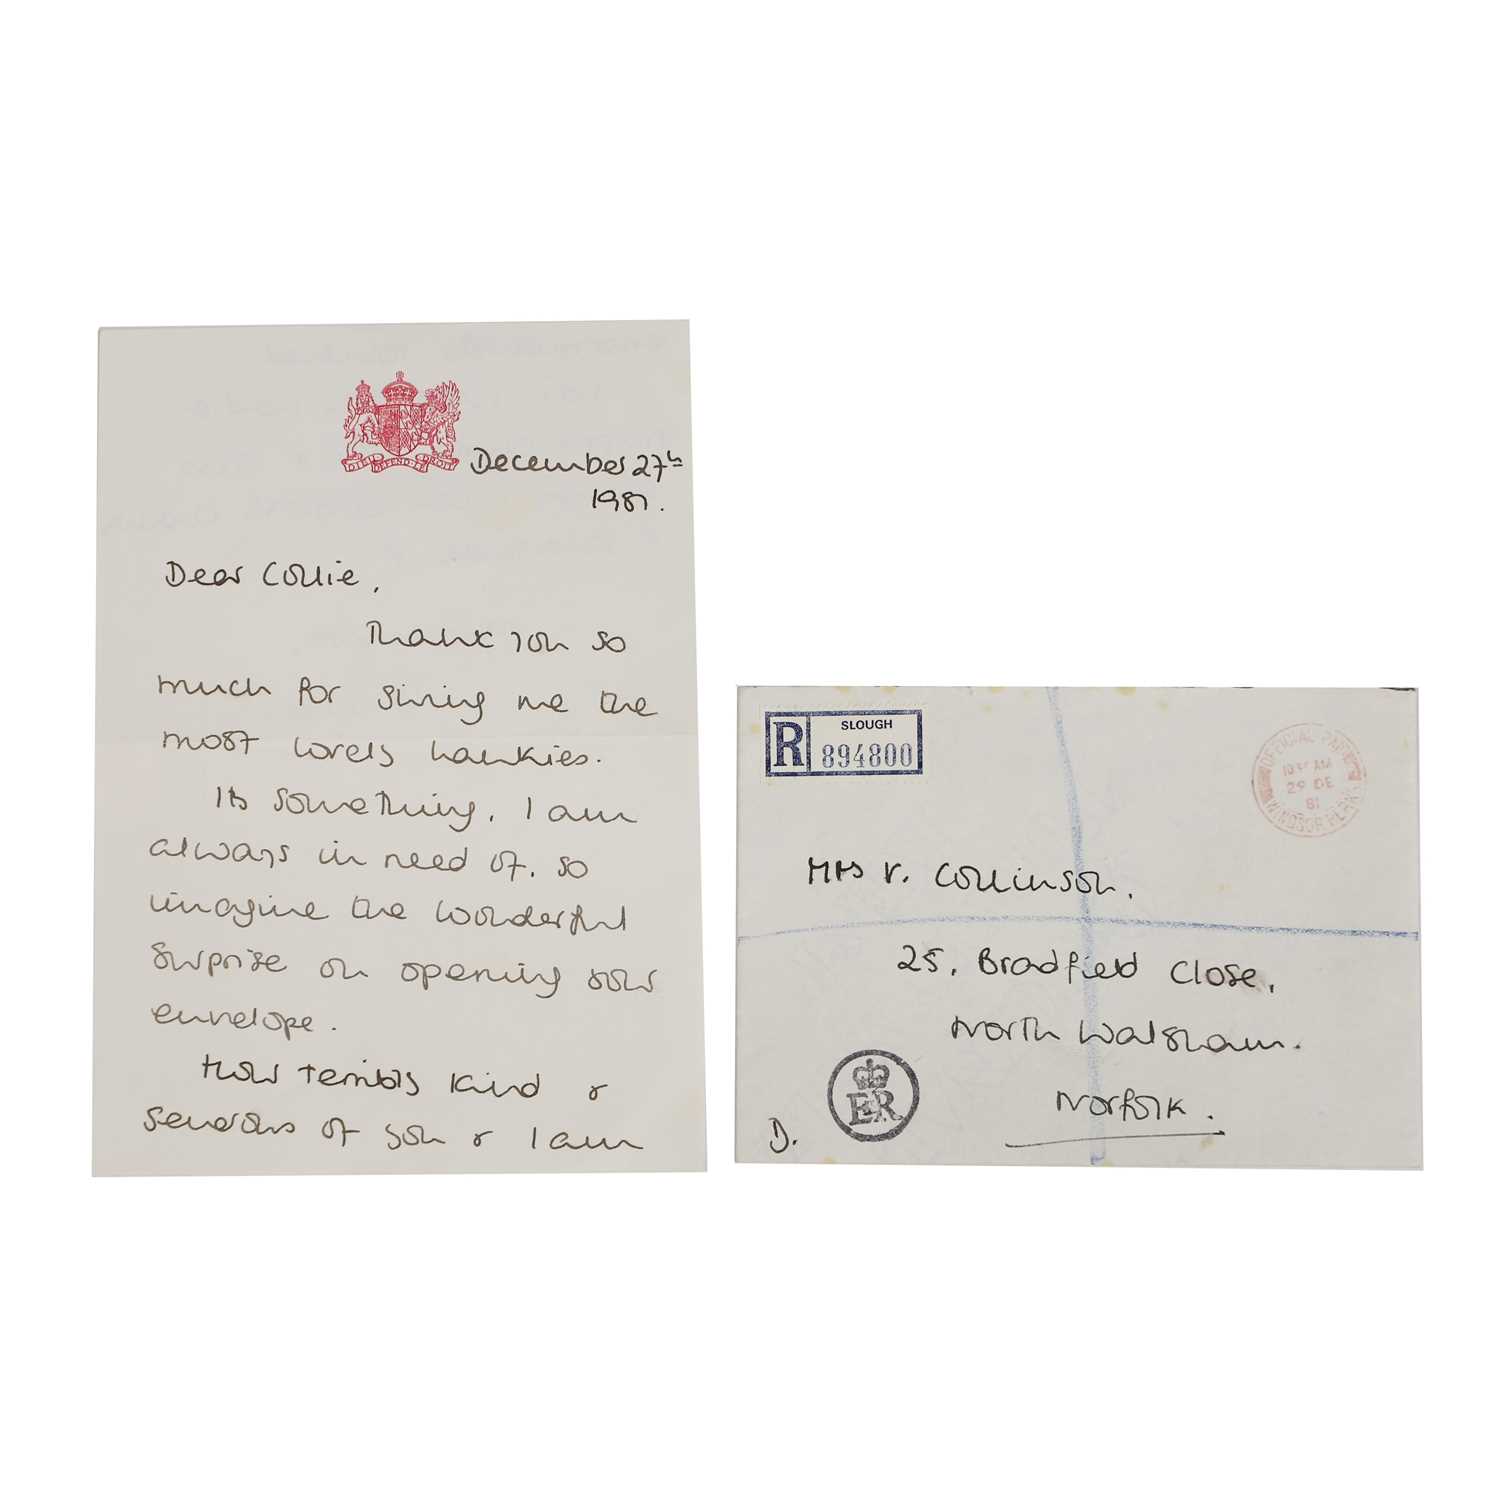 DIEU ET MON DROIT
December 27th
1981.
Dear Collie,
Thank you so
much for giving me the
most lovely hankies.
Its something, I am
always in need of, so
imagine the wonderful
surprise on opening your
envelope.
How terribly kind &
generous of you & I am
R SLOUGH
894800
OFFICIAL PAID
AM
29 DE
81
WINDSOR
Mrs V. Collinson.
25, Bradfield Close,
North Walsham.
Norfolk.
D.
EIIR